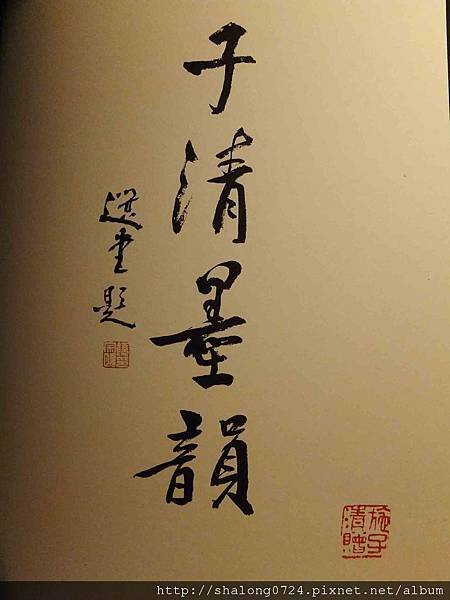 子清墨韻
選堂題
施子清贈
http://shalong0724.pixnet.net/album